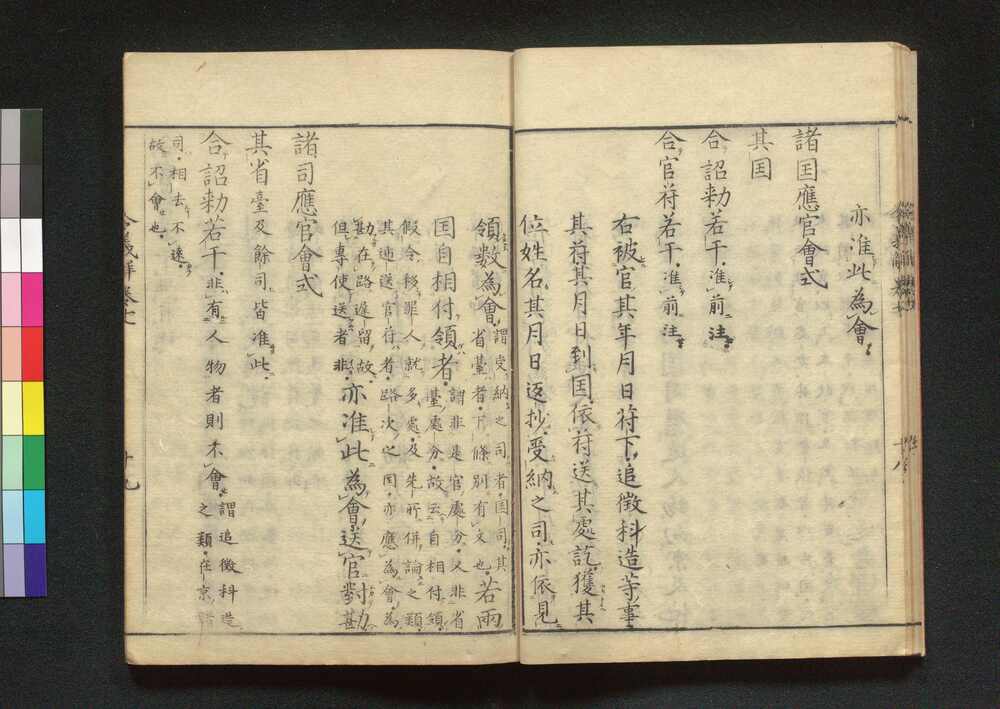 亦准此為會
諸国應官會式
其国
合詔勅若干准前注
合官符若干准前注
右被官其年月日符下追徴科造等事
其符其月日到国依符送其處訖獲其
位姓名其月日返抄受納之司亦依見
領数為會謂受納之司者国司其
省臺者下條別有文也若兩
国自相付領者謂非是官處分又非省
臺處分故云自相付領
假令移罪人就多處及先所併論之類
其逓送官符者路次之国亦應為會為
勘在路遅留故
但専使送者非亦准此為會送官對勘
諸司應官會式
其省臺及餘司皆准此
合詔勅若干非有人物者則不會謂追徴科造
之類在京諸
司相去不遠
故不會也
令義解巻七
十九
十八